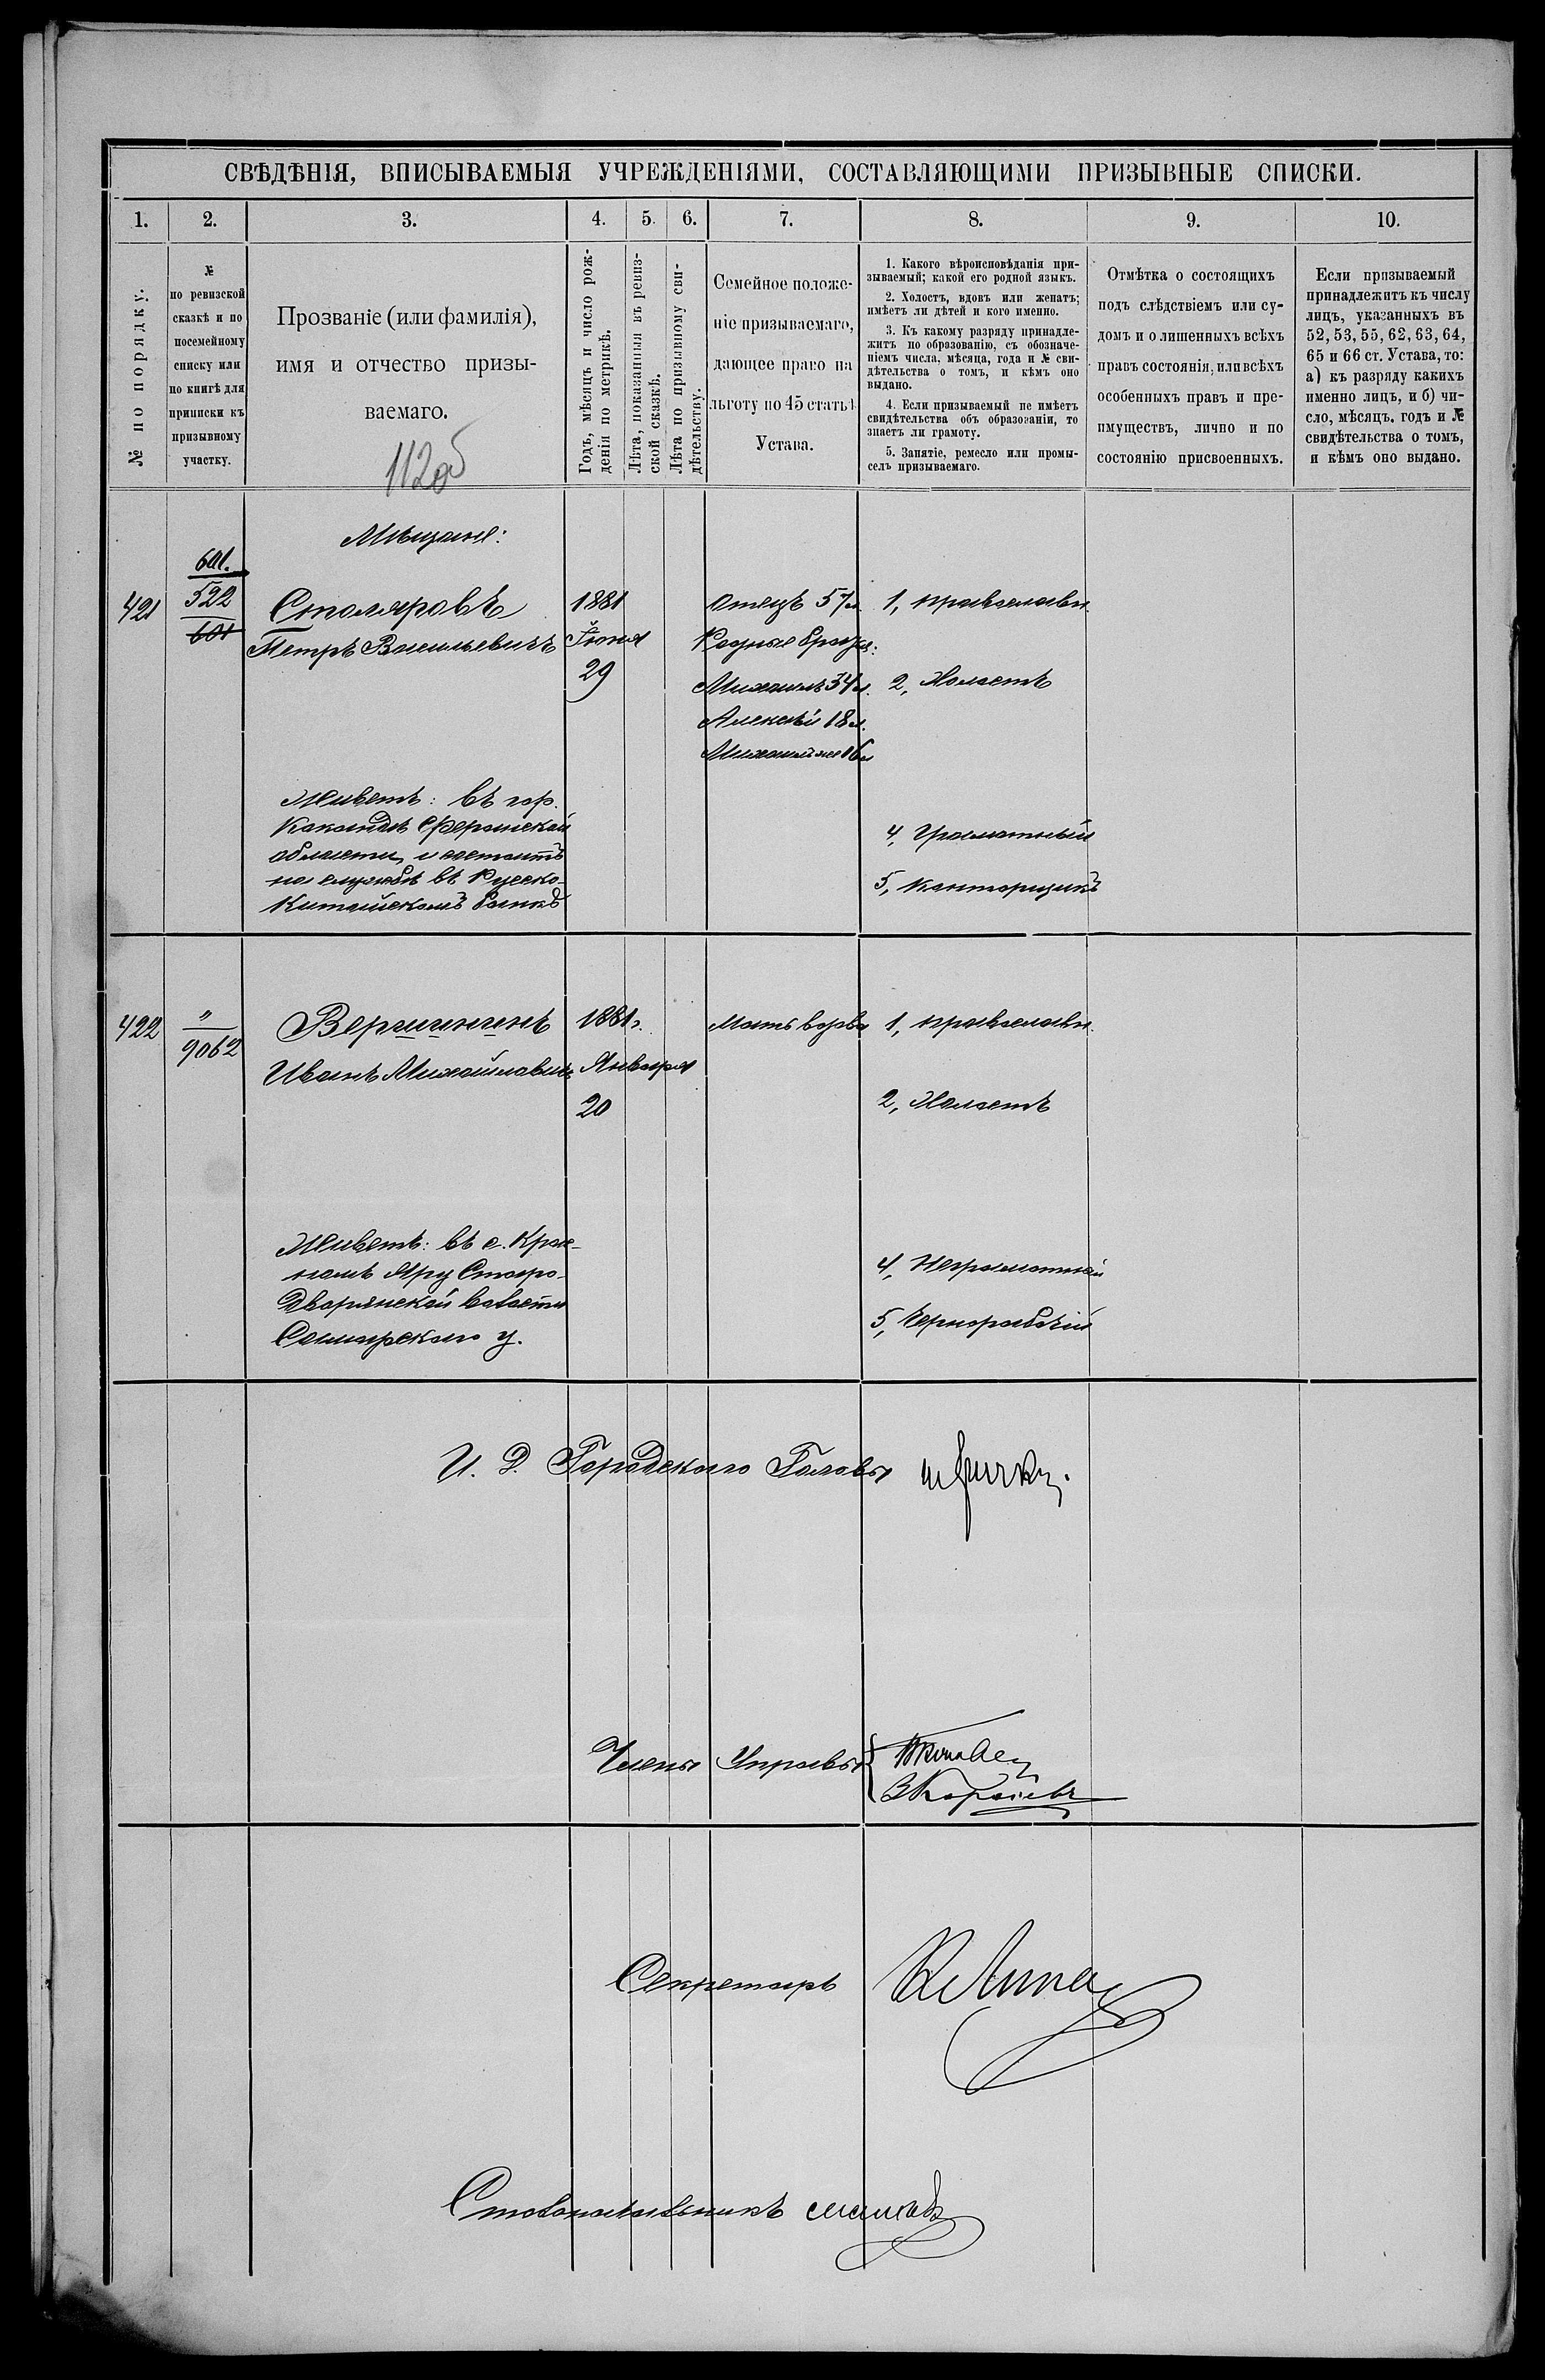 СВѢДѢНІЯ, ВПИСЫВАЕМЫЯ УЧРЕЖДЕНІЯМИ, СОСТАВЛЯЮЩИМИ ПРИЗЫВНЫЕ СПИСКИ.
1. 2. 3. 4. 5. 6. 7. 8. 9. 10.
№ по порядку.
№
по ревизской
сказкѣ и по
посемейному
списку или
по книгѣ для
приписки къ
призывному
участку.
Прозваніе (или фамилія),
имя и отчество призы-
ваемаго.
Годъ, мѣсяцъ и число рож-
денія по метрикѣ.
Лѣта, показанныя въ ревиз-
ской сказкѣ.
Лѣта по призывному сви-
дѣтельству.
Семейное положе-
ніе призываемаго,
дающее право на
льготу по 45 статьѣ
Устава.
1. Какого вѣроисповѣданія при-
зываемый; какой его родной языкъ.
2. Холостъ, вдовъ или женатъ;
имѣетъ ли дѣтей и кого именно.
3. Къ какому разряду принадле-
житъ по образованію, съ обозначе-
ніемъ числа, мѣсяца, года и № сви-
дѣтельства о томъ, и кѣмъ оно
выдано.
4. Если призываемый не имѣетъ
свидѣтельства объ образованіи, то
знаетъ ли грамоту.
5. Занятіе, ремесло или промы-
селъ призываемаго.
Отмѣтка о состоящихъ
подъ слѣдствіемъ или су-
домъ и о лишенныхъ всѣхъ
правъ состоянія, или всѣхъ
особенныхъ правъ и пре-
имуществъ, лично и по
состоянію присвоенныхъ.
Если призываемый
принадлежитъ къ числу
лицъ, указанныхъ въ
52, 53, 55, 62, 63, 64,
65 и 66 ст. Устава, то:
а) къ разряду какихъ
именно лицъ, и б) чи-
сло, мѣсяцъ, годъ и №
свидѣтельства о томъ,
и кѣмъ оно выдано.
112об
Мѣщане:
421
601.
522
601
Столяровъ
Петръ Васильевичъ
1881
Іюня
29
Отецъ 57 л.
Родные братья:
Михаилъ 34 л.
Алексѣй 18 л.
Михаилъ же 16 л
1, православн.
2, Холостъ
4, Грамотный
5, Конторщикъ
Живетъ: въ гор.
Кокандѣ Ферганской
области, и состоитъ
на службѣ въ Русско-
Китайскомъ банкѣ
422
"
9062
Вершининъ
Иванъ Михайловичъ
1881 г.
Января
20
Мать вдова
1, православн.
2, Холостъ
4, Неграмотный
5, Чернорабочій
Живетъ: въ с. Крас-
номъ Яру Старо-
Дворянской волости
Самарскаго у.
И. Д. Городского Головы
Члены Управы
Секретарь
Столоначальникъ